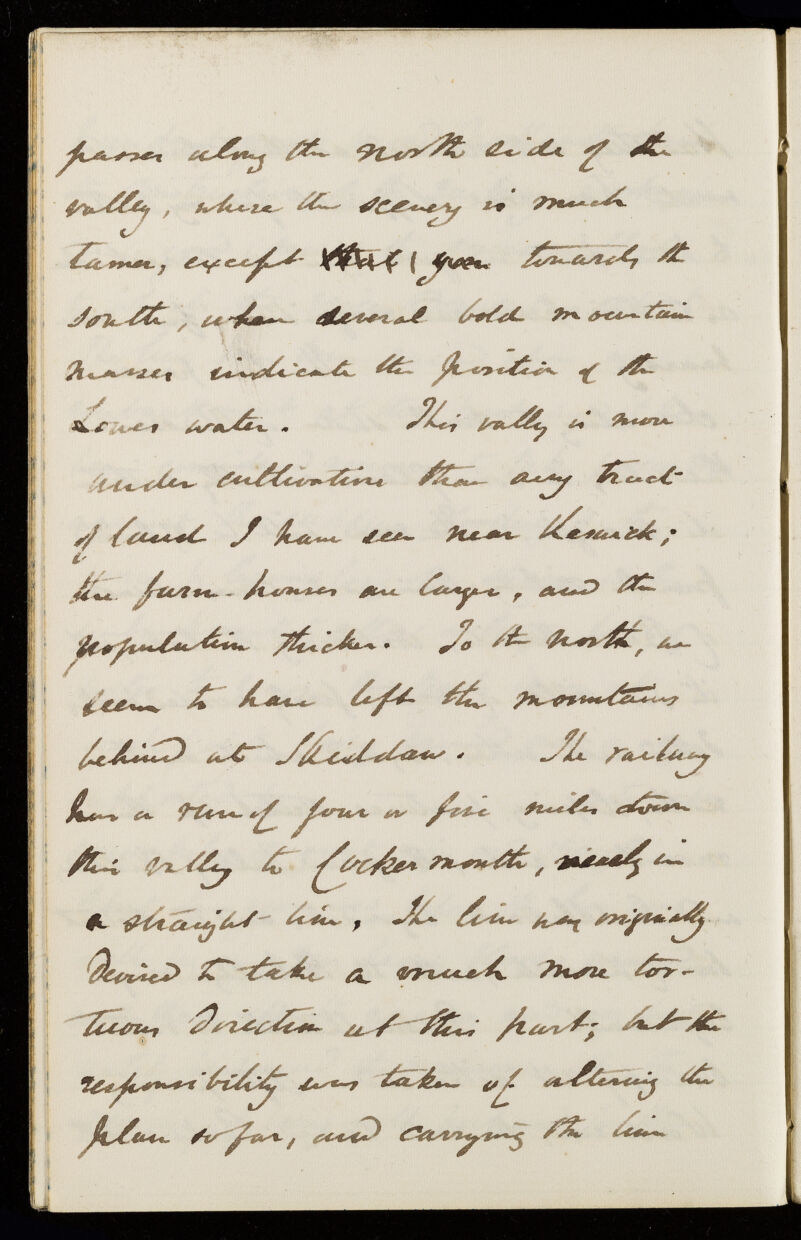 passes along the north side of the
valley, where the scenery is much
tamer, except towards the
south, where several bold mountain
masses indicate the position of the
Lowes water. This valley is more
under cultivation than any tract
of land I have seen near Keswick;
the farm-houses are larger, and the
population thicker. To the north, we
seem to have left the mountains
behind at Skiddaw. The railway
has a run of four or five miles down
this valley to Cockermouth, nearly in
a straight line. The line was originally
devised to take a much more tor-
tuous direction at this part; but the
responsibility was taken of altering the
plan so far, and carrying the line